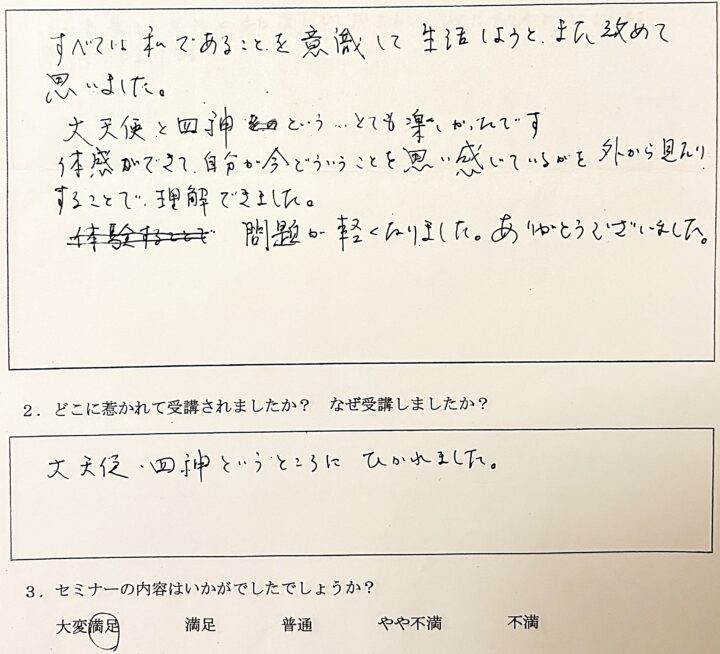 すべては私であることを意識して生活しようと、また改めて
思いました。
大天使と四神という…とても楽しかったです
体感ができて、自分が今どういうことを思い感じているかを外から見たり
することで、理解できました。
体験することで 問題が軽くなりました。ありがとうございました。
2．どこに惹かれて受講されましたか？ なぜ受講しましたか？
大天使・四神というところにひかれました。
3．セミナーの内容はいかがでしたでしょうか？
大変満足 満足 普通 やや不満 不満